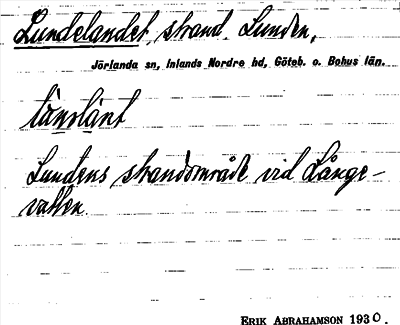 Lundelandet, strand. Lunden,
Jörlanda sn, Inlands Nordre hd, Göteb. o. Bohus län.
Lundens strandområde vid Långe-
vatten.
ERIK ABRAHAMSON 1930.